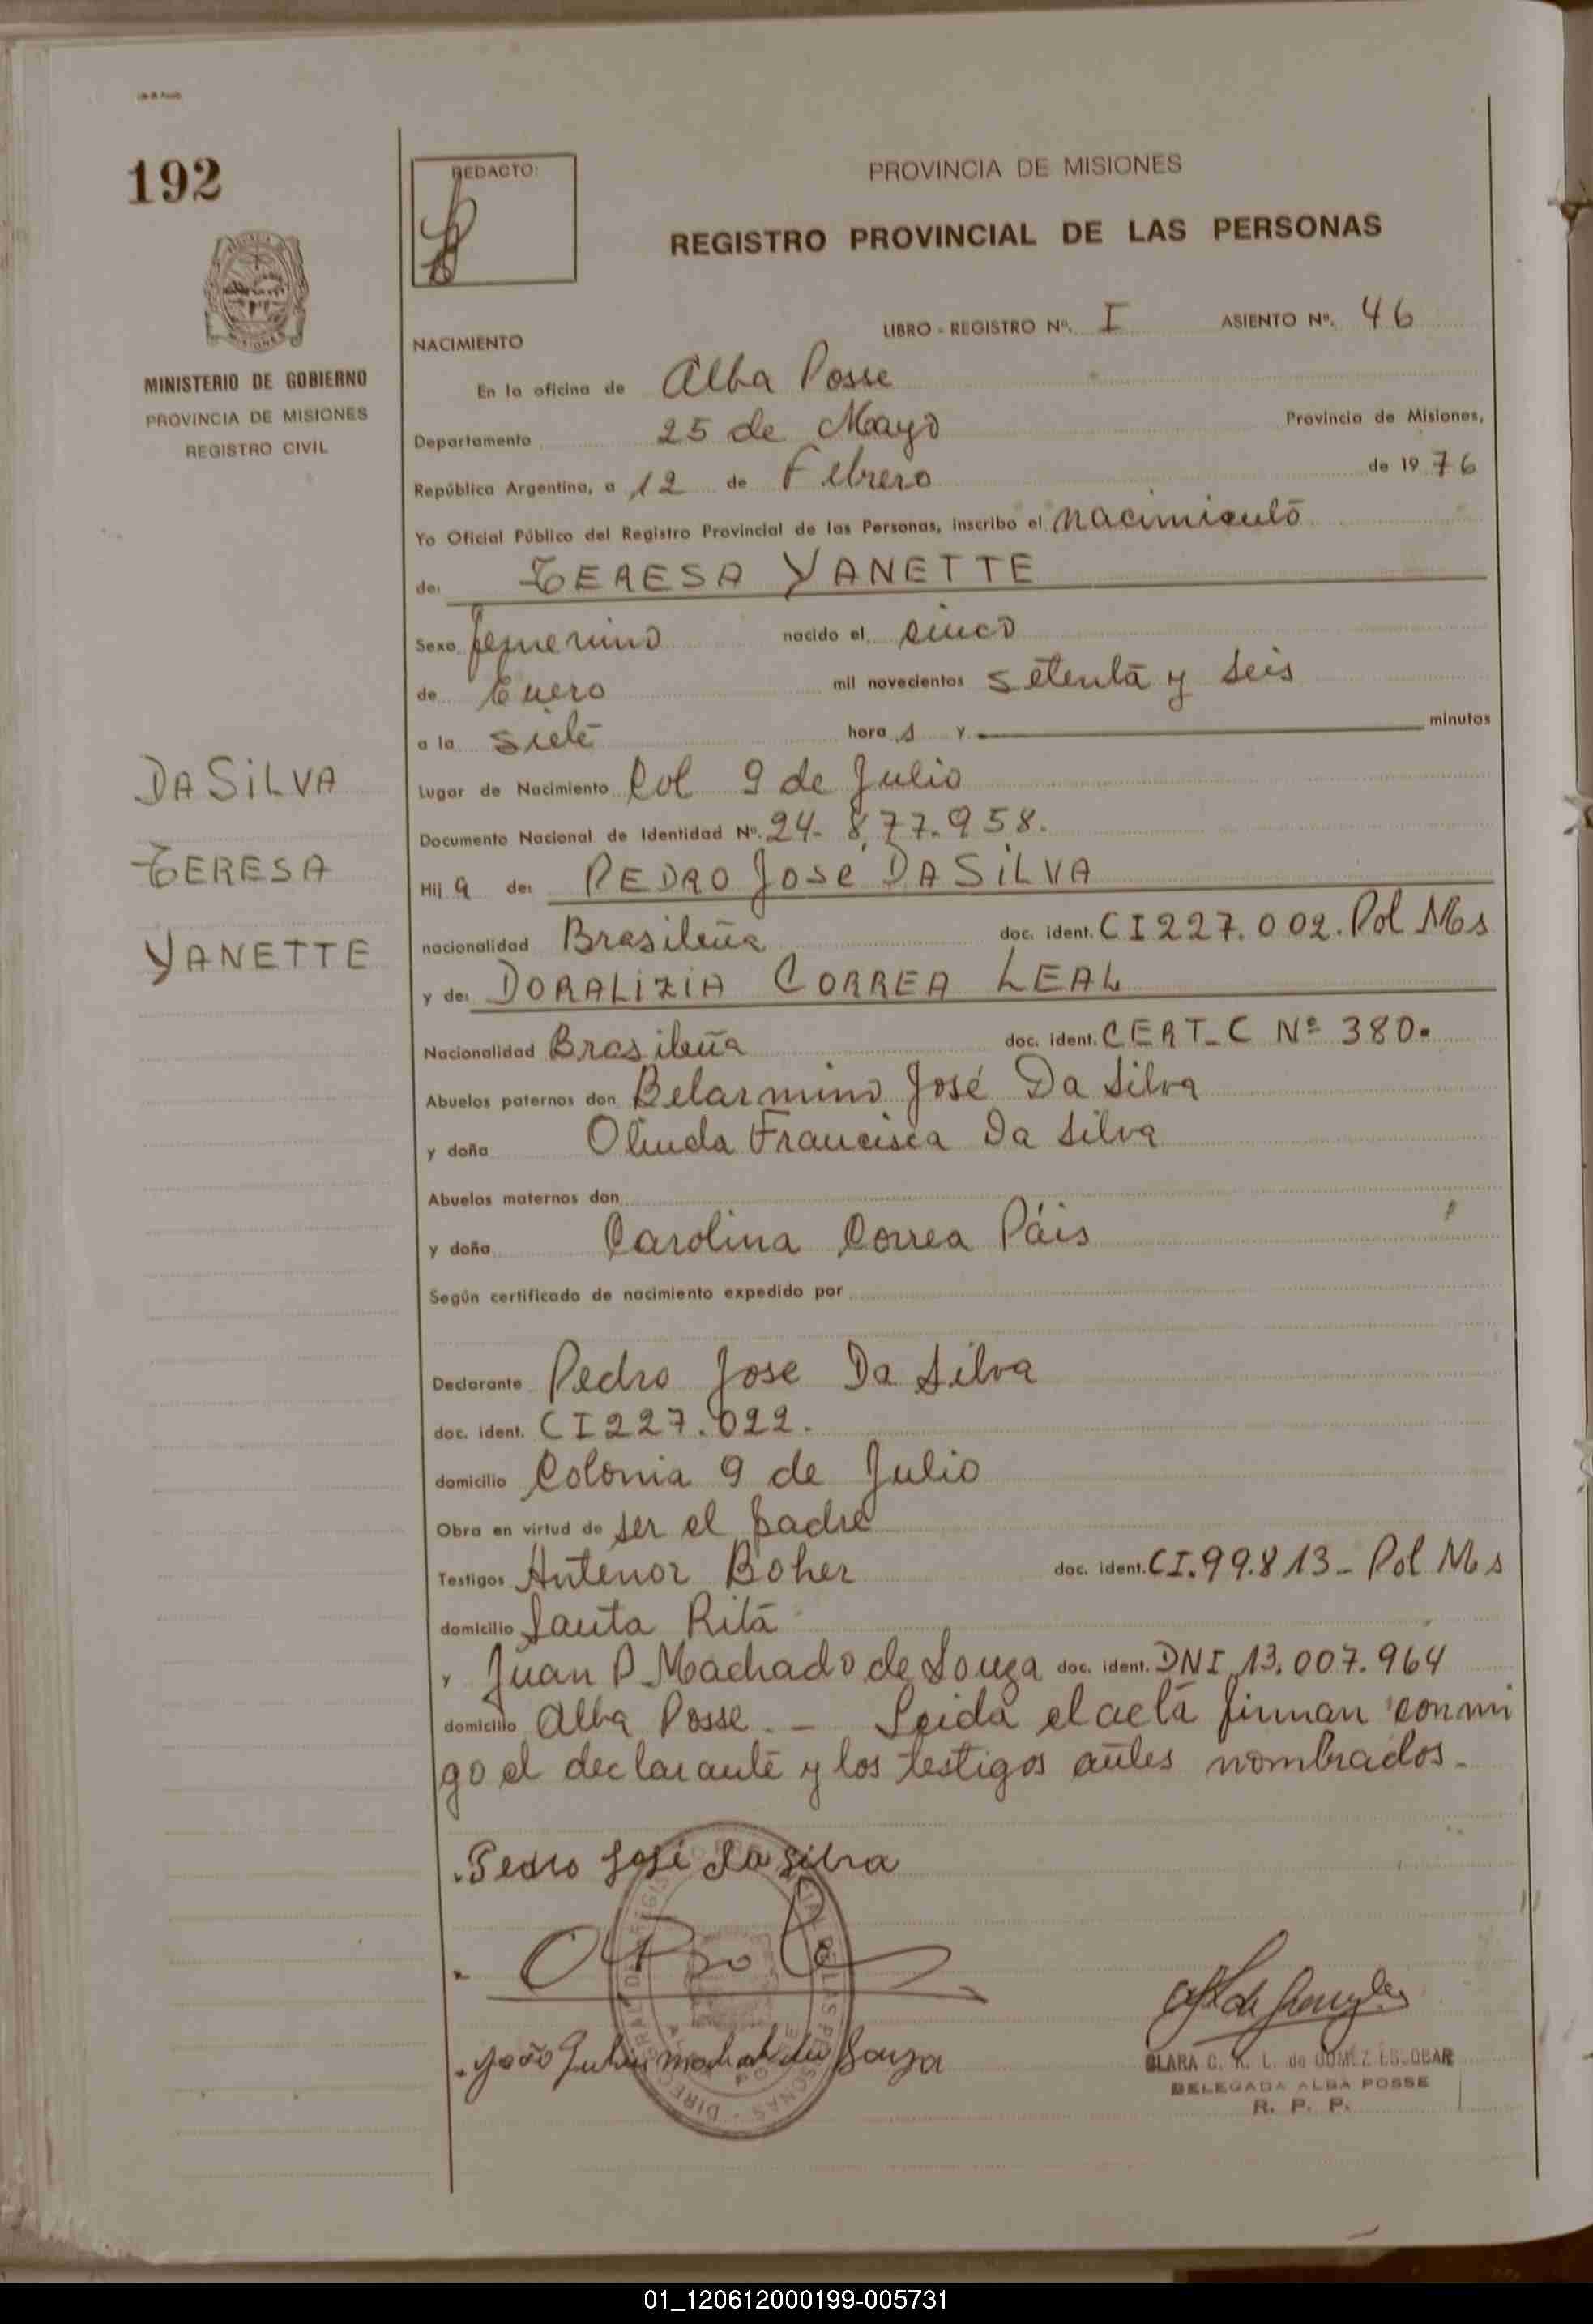 192
REDACTO:
PROVINCIA DE MISIONES
REGISTRO PROVINCIAL DE LAS PERSONAS
MINISTERIO DE GOBIERNO
PROVINCIA DE MISIONES
REGISTRO CIVIL
LIBRO - REGISTRO Nº. I ASIENTO Nº. 46
NACIMIENTO
En la oficina de Alba Posse
Departamento 25 de Mayo Provincia de Misiones,
República Argentina, a 12 de Febrero de 1976
Yo Oficial Público del Registro Provincial de las Personas, inscribo el nacimiento
de: TERESA YANETTE
Sexo femenino nacido el cinco
de Enero mil novecientos setenta y seis
a la siete hora s y minutos
DA SILVA
TERESA
YANETTE
Lugar de Nacimiento Col 9 de Julio
Documento Nacional de Identidad Nº. 24-877.958.
Hij a de: PEDRO José DA SiLVA
nacionalidad Brasileña doc. ident. CI 227.002. Pol Ms
y de: DORALIZIA CORREA LEAL
Nacionalidad Brasileña doc. ident. CERT_C Nº 380.
Abuelos paternos don Belarmino José Da Silva
y doña Olinda Francisca Da Silva
Abuelos maternos don
y doña Carolina Correa Páis
Según certificado de nacimiento expedido por
Declarante Pedro Jose Da Silva
doc. ident. CI 227.022.
domicilio Colonia 9 de Julio
Obra en virtud de ser el padre
Testigos Antenor Boher doc. ident. CI.99.813- Pol Ms
domicilio Santa Rita
y Juan P Machado de Souza doc. ident. DNI 13.007.964
domicilio Alba Posse - Leida el acta firman conmi
go el declarante y los testigos antes nombrados-
Pedro José da silva
João machado de Souza
CLARA C. K. L. de GOMEZ ESCOBAR
DELEGADA ALBA POSSE
R. P. P.
01_120612000199-005731